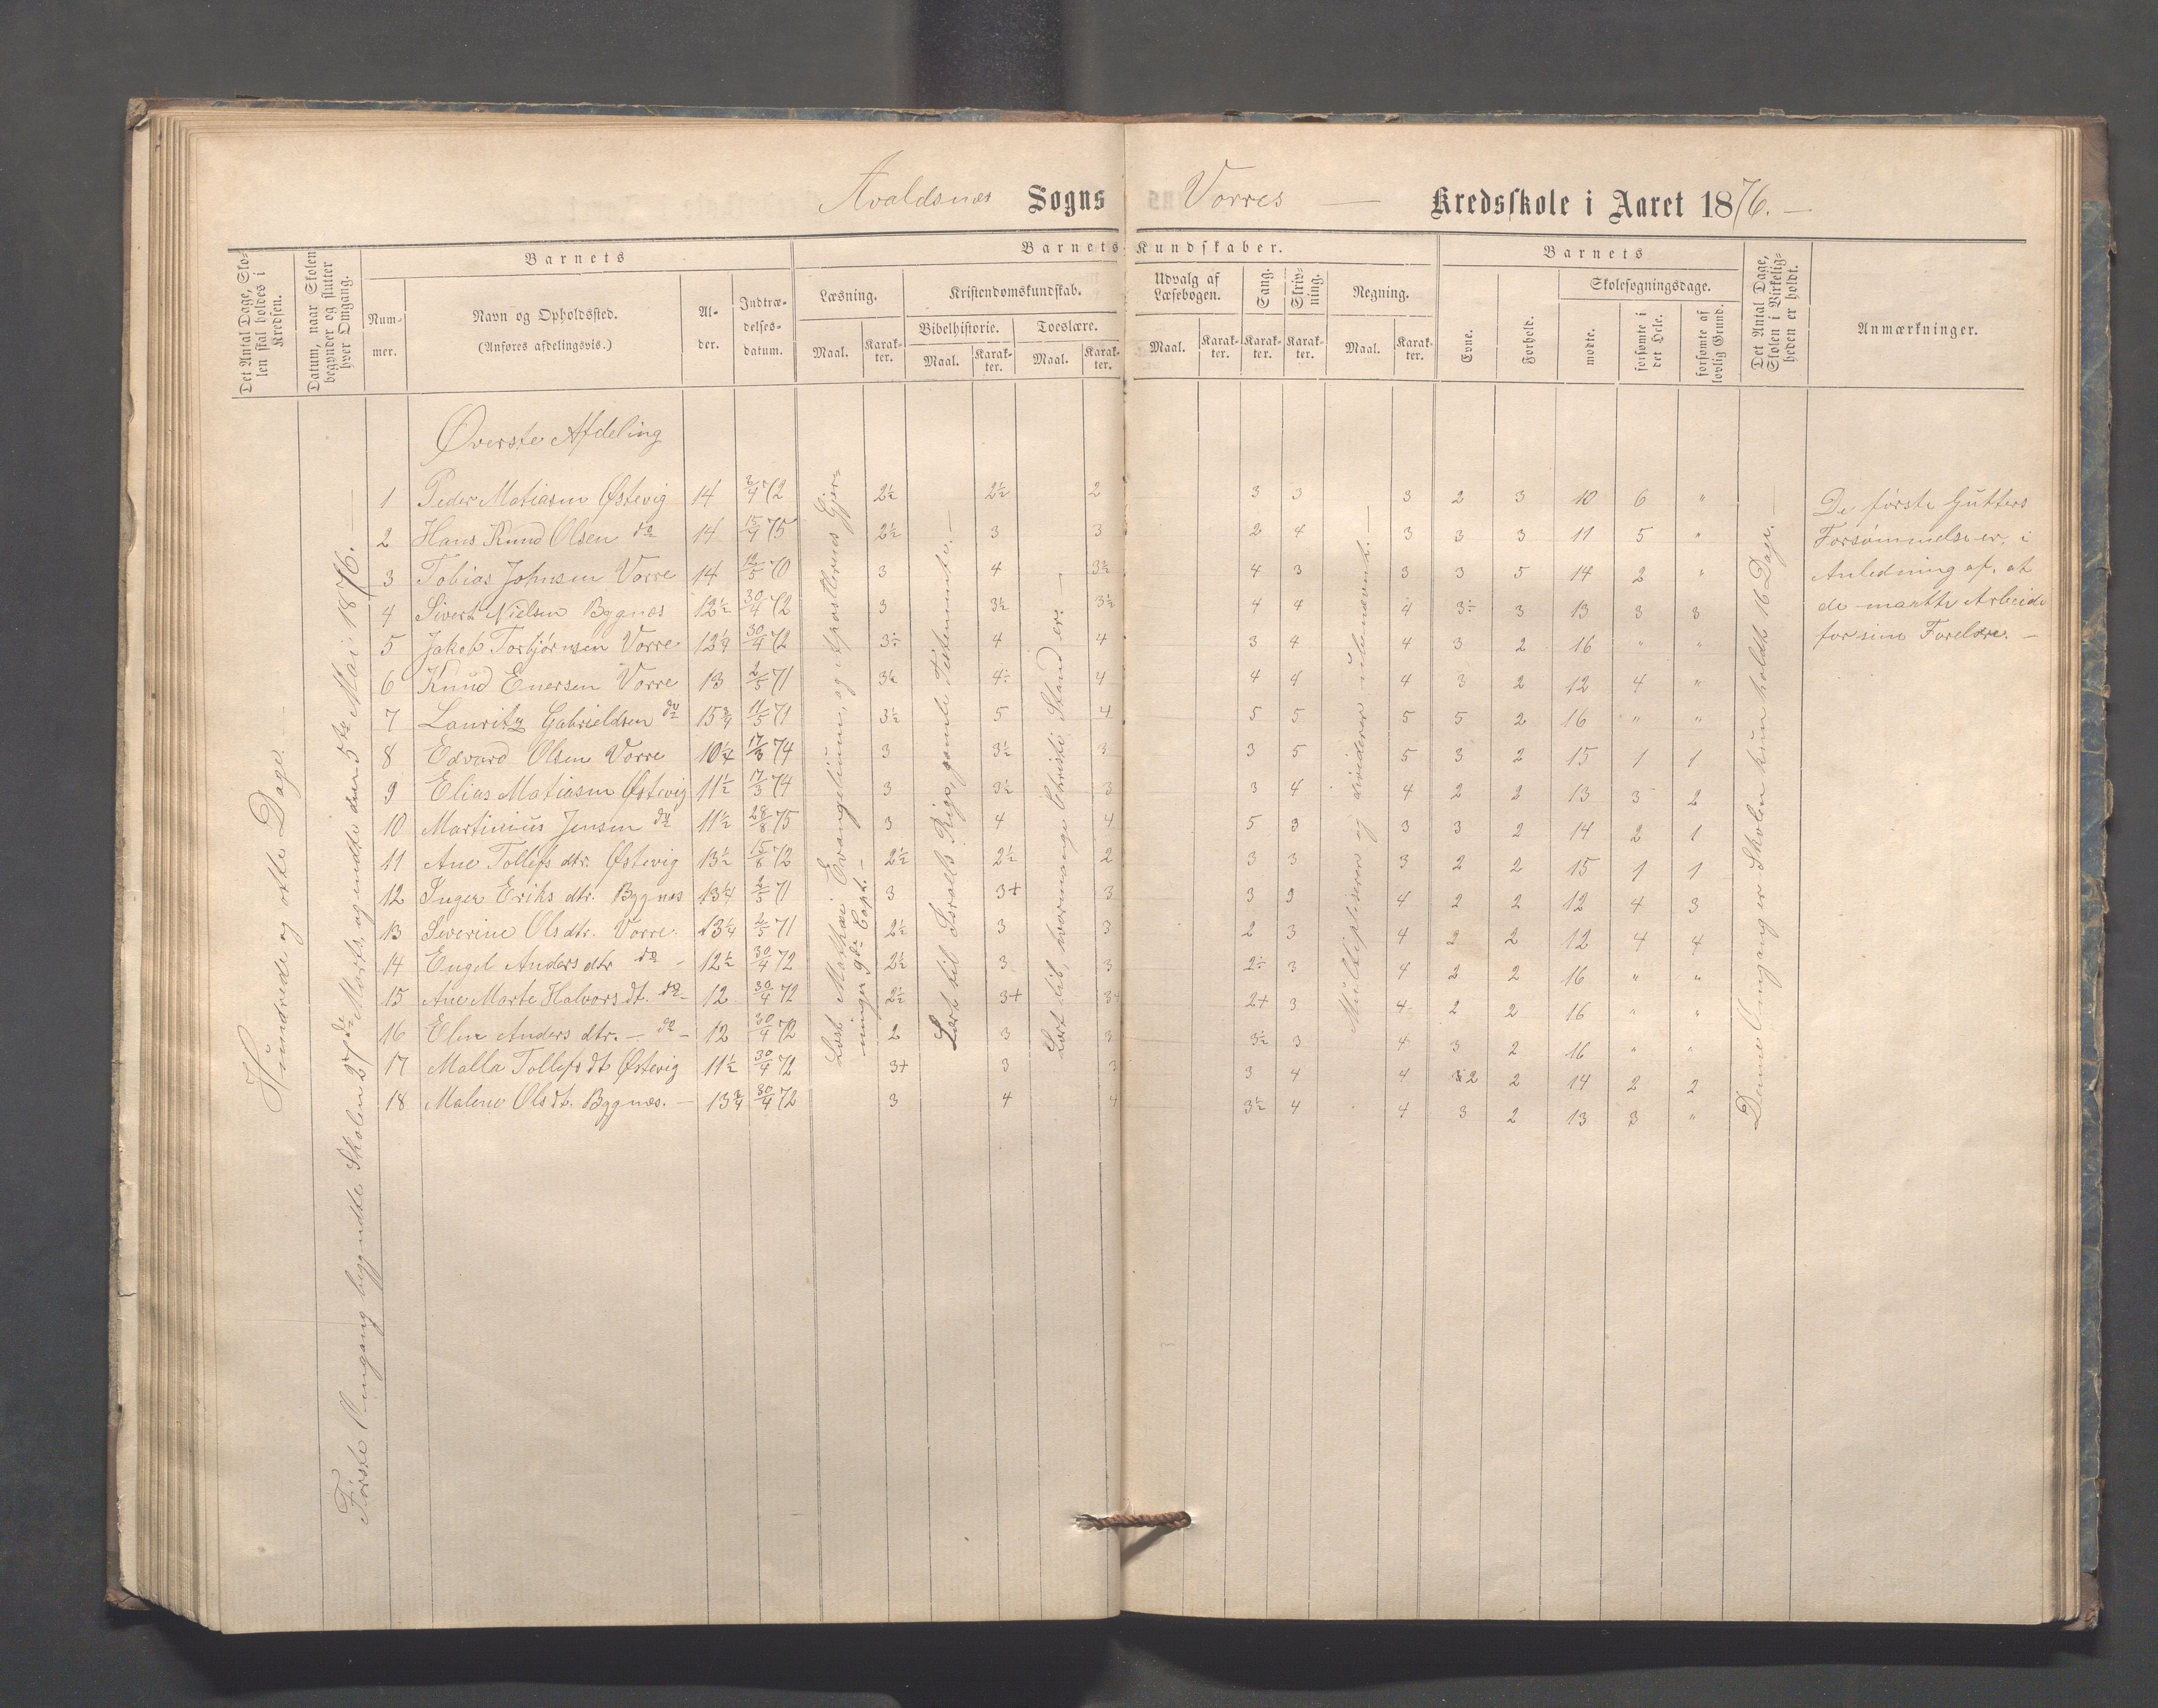 Avaldsnæs Sogns Vorres — Kredsskole i Aaret 1876. —
Det Antal Dage, Skolen skal holdes i Kredsen.
Datum, naar Skolen begynder og slutter hver Omgang.
Barnets
Nummer.
Navn og Opholdssted.
(Anføres afdelingsvis.)
Alder.
Indtrædelsesdatum.
Barnets Kundskaber.
Læsning.
Maal. Karakter.
Kristendomskundskab.
Bibelhistorie. Troeslære.
Maal. Karakter. Maal. Karakter.
Udvalg af Læsebogen.
Maal. Karakter.
Sang. Karakter.
Skrivning. Karakter.
Regning.
Maal. Karakter.
Barnets
Evne.
Forhold.
Skolesøgningsdage.
mødte.
forsømte i det Hele.
forsømte af lovlig Grund.
Det Antal Dage, Skolen i Virkeligheden er holdt.
Anmærkninger.
Hundrede og otte Dage.
Første Omgang begyndte Skolen 27de Marts, og endte den 5te Mai 1876. —
Øverste Afdeling
Læst Mathæi Evangelium, og Apostlerens Gjerninger 9de Capt. —
Lært til Israels Rige, gamle Testemente. —
Lært til, hvormange Christi Stand er: —
Multiplicere og dividere ubenævnt. —
Denne Omgang er Skolen kun holdt 16 Dage. —
1 Peder Matiasen Østevig 14 2/4 72 2½ 2½ 2 3 3 3 2 3 10 6 "
2 Hans Knud Olsen do 14 15/4 75 2½ 3 3 2 4 3 3 3 11 5 "
3 Tobias Johnsen Vorre 14 12/5 70 3 4 3½ 4 3 3 3 5 14 2 "
4 Sivert Nielsen Bygnes 12½ 30/4 72 3 3½ 3½ 4 4 4 3÷ 3 13 3 3
5 Jakob Torbjørnsen Vorre 12¼ 30/4 72 3÷ 4 4 3 4 4 3 2 16 " "
6 Knud Enersen Vorre 13 2/5 71 3½ 4÷ 4 4 4 4 3 2 12 4 "
7 Lauritz Gabrieldsen do 15¾ 11/5 71 3½ 5 4 5 5 5 5 2 16 " "
8 Edvard Olsen Vorre 10¼ 17/3 74 3 3½ 3 3 5 5 3 2 15 1 1
9 Elias Matiasen Østevig 11½ 17/3 74 3 3½ 3 3 4 4 2 2 13 3 2
10 Martinius Jensen do 11½ 28/8 75 3 4 4 5 3 3 3 2 14 2 1
11 Ane Tollefs dtr. Østevig 13½ 15/8 72 2½ 2½ 2 3 3 3 2 2 15 1 1
12 Inger Eriks dtr. Bygnes 13¼ 2/5 71 3 3+ 3 3 3 4 2 2 12 4 3
13 Severine Ols dtr. Vorre. 13¼ 2/5 71 2½ 3 3 2 3 4 2 2 12 4 4
14 Engel Anders dtr do - 12½ 30/4 72 2½ 3 3 2÷ 3 4 2 2 16 " "
15 Ane Marte Halvors dt. do - 12 30/4 72 2½ 3+ 3+ 2+ 3 4 2 2 16 " "
16 Elen Anders dtr. — do - 12 30/4 72 2 3 3 3½ 3 4 3 2 16 " "
17 Malla Tollefs dt Østevig 11½ 30/4 72 3+ 3 3 3 4 4 2 2 14 2 2
18 Malene Ols dt. Bygnes. — 13¾ 30/4 72 3 4 4 3½ 4 4 3 2 13 3 "
De første Gutters
Forsømmelse er, i
Anledning af, at
de maatte Arbeide
for sine Forelære. —